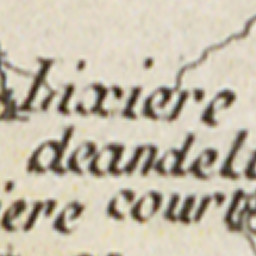 Lixiere
deandelu
iere court